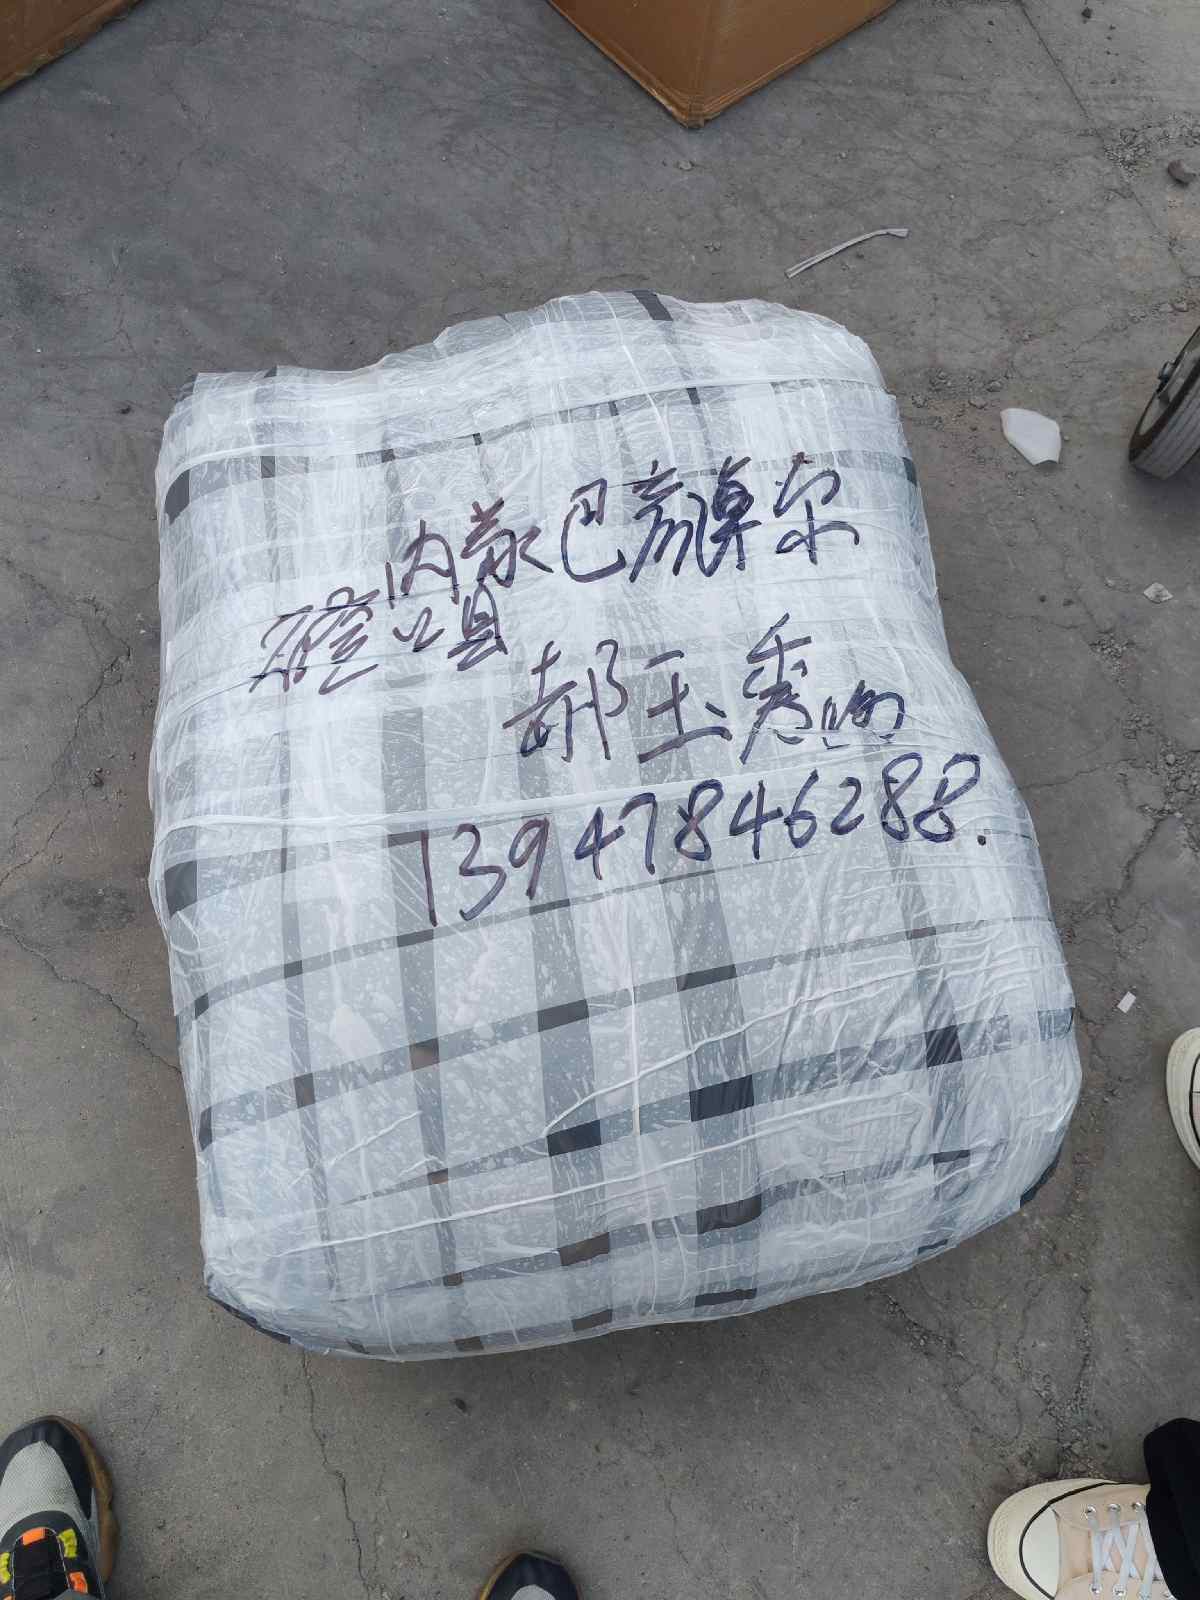 内蒙巴彦淖尔
磴口县
郝玉秀收
13947846288.